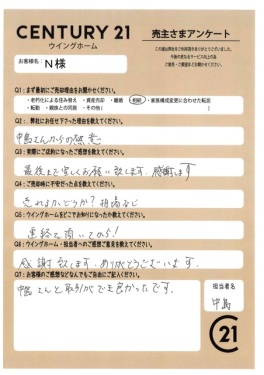 CENTURY 21
ウイングホーム
売主さまアンケート
この度は弊社をご利用頂きありがとうございました。
今後の更なるサービス向上の為
ご意見・ご感想などお聞かせください。
お客様名： N様
Q1：まず最初にご売却理由をお聞かせください。
・老朽化による住み替え ・資産売却 ・離婚 ・相続 ・家族構成変更に合わせた転居
・転勤 ・親族との同居 ・その他（ ）
Q2： 弊社にお任せ下さった理由を教えてください。
中島さんからの熱意
Q3：実際にご成約になったご感想を教えてください。
最後まで宜しくお願い致します。感謝です
Q4：ご売却時に不安だった点を教えてください。
売れるかどうか？
Q5：ウイングホームをどこでお知りになったか教えてください。
連絡を頂いてから！
Q6：ウイングホーム・担当者へのご感想ご意見を教えてください。
感謝致します。ありがとうございます。
Q7：お客様のご感想などなんでもご自由にご記入ください。
中島さんと取引ができ良かったです。
担当者名
中島
C21